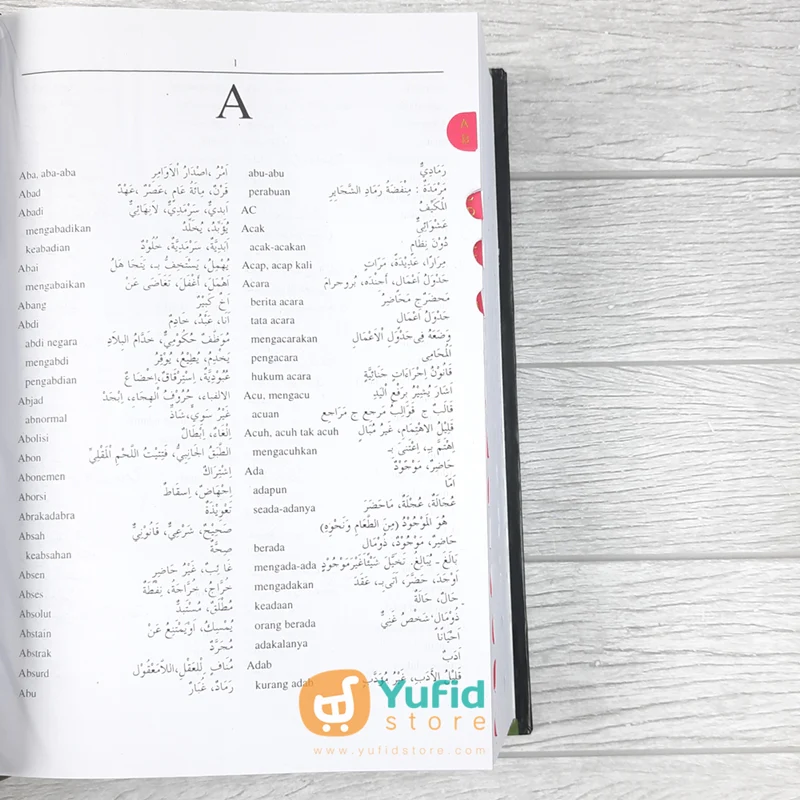 1
A
A
Aba, aba-aba أَمْرٌ، اِصْدَارُ اْلأَوَامِرِ
Abad قَرْنٌ، مِائَةُ عَامٍ، عَصْرٌ، عَهْدٌ
Abadi أَبَدِيٌّ، سَرْمَدِيٌّ، لاَنِهَائِيٌّ
mengabadikan يُؤَبِّدُ، يُخَلِّدُ
keabadian أَبَدِيَّةٌ، سَرْمَدِيَّةٌ، خُلُوْدٌ
Abai يُهْمِلُ، يَسْتَخِفُّ بـ، يَتَجَاهَلُ
mengabaikan أَهْمَلَ، أَغْفَلَ، تَغَاضَى عَنْ
Abang أَخٌ كَبِيْرٌ
Abdi أَنَا، عَبْدٌ، خَادِمٌ
abdi negara مُوَظَّفٌ حُكُوْمِيٌّ، خَدَّامُ الْبِلاَدِ
mengabdi يَخْدِمُ، يُطِيْعُ، يُوَقِّرُ
pengabdian عُبُوْدِيَّةٌ، اِسْتِرْقَاقٌ، إِخْضَاعٌ
Abjad الالفباء، حُرُوْفُ الْهِجَاءِ، أَبْجَدْ
abnormal غَيْرُ سَوِيٍّ، شَاذٌّ
Abolisi إِلْغَاءٌ، إِبْطَالٌ
Abon الطَّبَقُ الْجَانِبِيُّ، فَتِيْتُ اللَّحْمِ الْمَقْلِيِّ
Abonemen اِشْتِرَاكٌ
Aborsi إِجْهَاضٌ، اِسِقَاطٌ
Abrakadabra تَعْوِيْذَةٌ
Absah صَحِيْحٌ، شَرْعِيٌّ، قَانُوْنِيٌّ
keabsahan صِحَّةٌ
Absen غَائِبٌ، غَيْرُ حَاضِرٍ
Abses خُرَّاجٌ، خُرَّاجَةٌ، نِفْطَةٌ
Absolut مُطْلَقٌ، مُسْتَبِدٌّ
Abstain يُمْسِكُ، اَوْيَمْتَنِعُ عَنْ
Abstrak مُجَرَّدٌ
Absurd مُنَافٍ لِلْعَقْلِ، اللاَّمَعْقُوْل
Abu رَمَادٌ، غُبَارٌ
abu-abu رَمَادِيٌّ
perabuan مَرْمَدَةٌ : مِنْفَضَةُ رَمَادِ السَّجَايِرِ
AC الْمُكَيِّفُ
Acak عَشْوَائِيٌّ
acak-acakan دُوْنَ نِظَامٍ
Acap, acap kali مِرَارًا، عَدِيْدَةً، مَرَّاتٍ
Acara جَدْوَلُ أَعْمَالٍ، أَجِنْدَه، بُرُوجرام
berita acara مَحْضَرٌ ج مَحَاضِرُ
tata acara جَدْوَلُ أَعْمَالٍ
mengacarakan وَضَعَهُ فِى جَدْوَلِ اْلأَعْمَالِ
pengacara الْمُحَامِى
hukum acara قَانُوْنُ إِجْرَاءَاتٍ جِنَائِيَّةٍ
Acu, mengacu أَشَارَ يُشِيْرُ بِرَفْعِ الْيَدِ
acuan قَالَبٌ ج قَوَالِبُ مَرجع ج مَرَاجِع
Acuh, acuh tak acuh قَلِيْلُ اْلاِهْتِمَامِ، غَيْرُ مُبَالٍ
mengacuhkan اِهْتَمَّ بـ، اِعْتَنَى بـ
Ada حَاضِرٌ، مَوْجُوْدٌ
adapun أَمَّا
seada-adanya عُجَالَةٌ، عُجْلَةٌ، مَاحَضَرَ
هُوَ الْمَوْجُوْدُ (مِنَ الطَّعَامِ وَنَحْوِهِ)
berada حَاضِرٌ، مَوْجُوْدٌ، ذُوْمَال
mengada-ada بَالَغَ - يُبَالِغُ، تَخَيَّلَ شَيْئًاغَيْرَمَوْجُوْدٍ
mengadakan أَوْجَدَ، حَضَّرَ، أَتَى بـ، عَقَدَ
keadaan حَالٌ، حَالَةٌ
orang berada ذُوْمَالٍ شَخْصٌ غَنِيٌّ
adakalanya أَحْيَانًا
Adab أَدَبٌ
kurang adab قَلِيْلُ الأَدَبِ، غَيْرُ مُهَذَّبٍ
Yufid
store
www.yufidstore.com